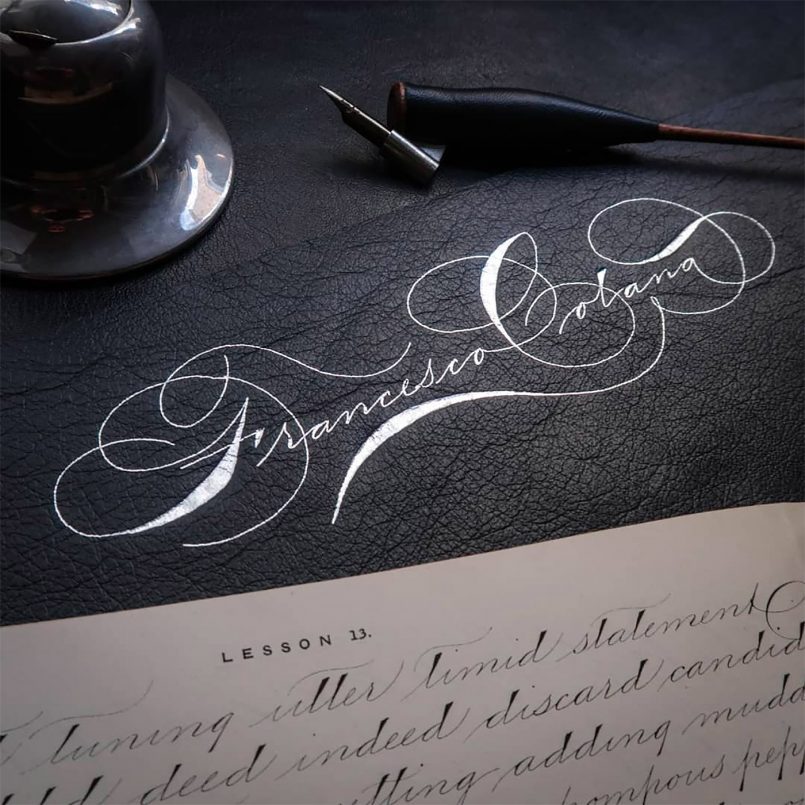 Francesco Cobana
LESSON 13.
tuning utter timid statement
deed indeed discard candid
adding
pompous